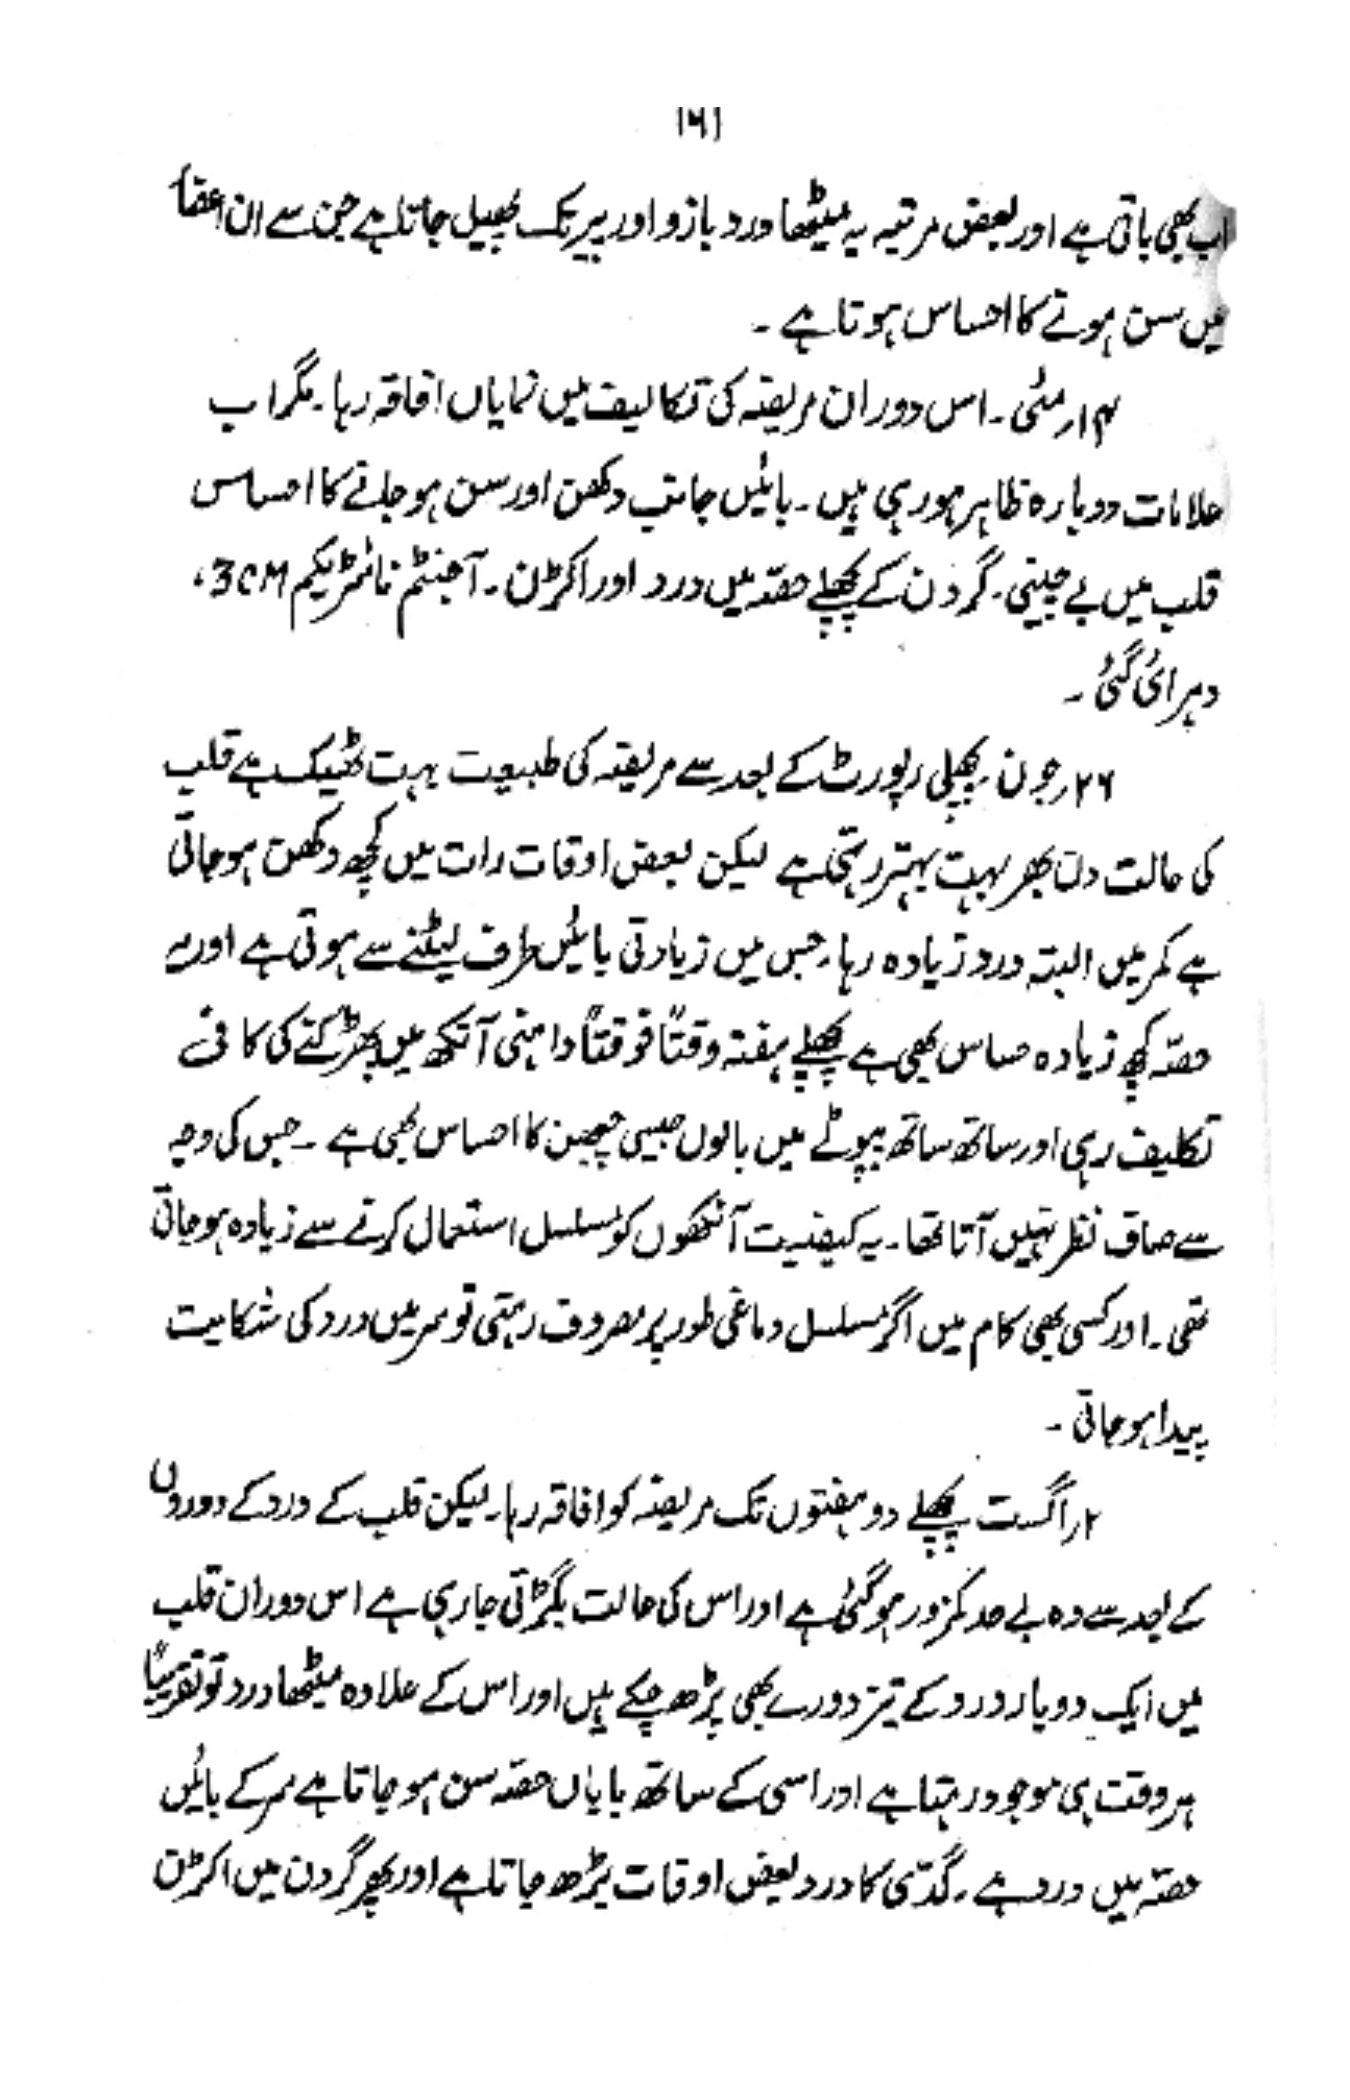 ۱۶۱
اب بھی باقی ہے اور بعض مرتبہ یہ میٹھا درد بازو اور پیر تک پھیل جاتا ہے جن سے ان اعضا
میں سن ہونے کا احساس ہوتا ہے ۔
۱۴؍مئی ۔ اس دوران مریضہ کی تکالیف میں نمایاں افاقہ رہا ۔ مگر اب
علامات دوبارہ ظاہر ہو رہی ہیں ۔ بائیں جانب دکھن اور سن ہو جانے کا احساس
قلب میں بے چینی ۔ گردن کے پچھلے حصّہ میں درد اور اکڑن ۔ آجنٹم نائٹریکم 3CM،
دہرائی گئی ۔
۲۶؍جون ۔ پچھلی رپورٹ کے بعد سے مریضہ کی طبیعت بہت ٹھیک ہے قلب
کی حالت دن بھر بہت بہتر رہتی ہے لیکن بعض اوقات رات میں کچھ دکھن ہو جاتی
ہے کمر میں البتہ درد زیادہ رہا ۔ جس میں زیادتی بائیں طرف لیٹنے سے ہوتی ہے اور یہ
حصّہ کچھ زیادہ حساس بھی ہے پچھلے ہفتہ وقتاً فوقتاً داہنی آنکھ میں پھڑکنے کی کافی
تکلیف رہی اور ساتھ ساتھ پپوٹے میں بالوں جیسی چھبن کا احساس بھی ہے ۔ جس کی وجہ
سے صاف نظر نہیں آتا تھا ۔ یہ کیفیت آنکھوں کو مسلسل استعمال کرنے سے زیادہ ہو جاتی
تھی ۔ اور کسی بھی کام میں اگر مسلسل دماغی طور پر مصروف رہتی تو سر میں درد کی شکایت
پیدا ہو جاتی ۔
۲؍اگست پچھلے دو ہفتوں تک مریضہ کو افاقہ رہا ۔ لیکن قلب کے درد کے دوروں
کے بعد سے وہ بے حد کمزور ہو گئی ہے اور اس کی حالت بگڑتی جا رہی ہے اس دوران قلب
میں ایک دو بار درد کے تیز دورے بھی پڑھ چکے ہیں اور اس کے علاوہ میٹھا درد تو تقریباً
ہر وقت ہی موجود رہتا ہے اور اسی کے ساتھ بایاں حصّہ سن ہو جاتا ہے سر کے بائیں
حصّہ میں درد ہے ۔ گدّی کا درد بعض اوقات بڑھ جاتا ہے اور پھر گردن میں اکڑن